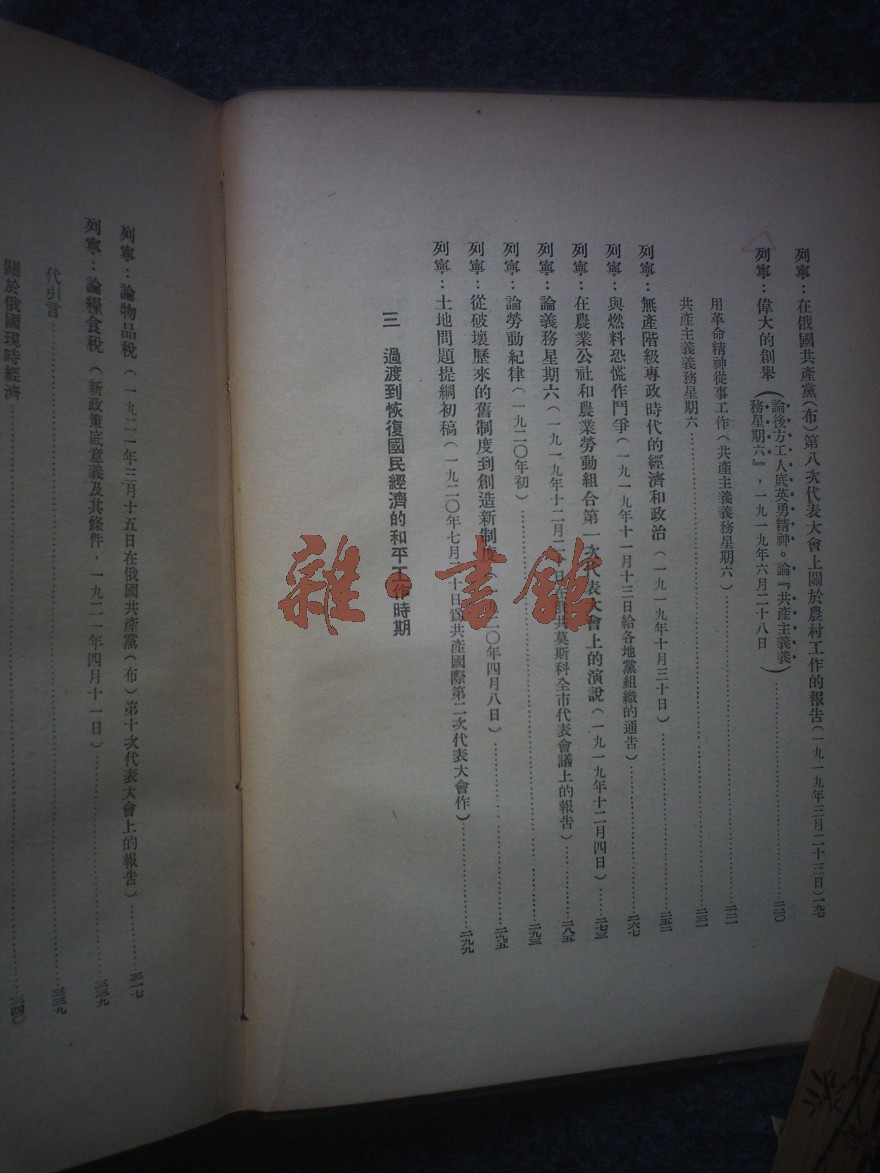 列寧：在俄國共產黨（布）第八次代表大會上關於農村工作的報告（一九一九年三月二十三日）一九七
列寧：偉大的創舉（論後方工人底英勇精神。論『共產主義義
務星期六』，一九一九年六月二十八日）……二二〇
用革命精神從事工作（共產主義義務星期六）……二二一
共產主義義務星期六……二三一
列寧：無產階級專政時代的經濟和政治（一九一九年十月三十日）……二五二
列寧：與燃料恐慌作鬥爭（一九一九年十一月十三日給各地黨組織的通告）……二六七
列寧：在農業公社和農業勞動組合第一次代表大會上的演說（一九一九年十二月四日）……二七三
列寧：論義務星期六（一九一九年十二月二十日在俄共莫斯科全市代表會議上的報告）……二八五
列寧：論勞動紀律（一九二〇年初）……二九三
列寧：從破壞歷來的舊制度到創造新制度（一九二〇年四月八日）……二九五
列寧：土地問題提綱初稿（一九二〇年七月二十日爲共產國際第二次代表大會作）……二九九
三 過渡到恢復國民經濟的和平工作時期
列寧：論物品稅（一九二一年三月十五日在俄國共產黨（布）第十次代表大會上的報告）……三一七
列寧：論糧食稅（新政策底意義及其條件，一九二一年四月十一日）……三三九
代引言……三三九
關於俄國現時經濟……三四〇
雜·書館